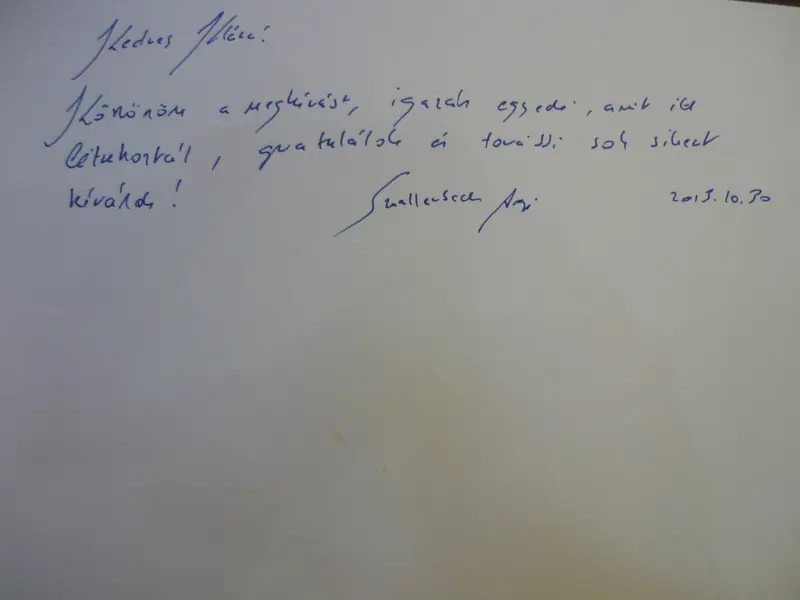 Kedves Klári!
Köszönöm a meghívást, igazán egyedi, amit itt
létrehoztál, gratulálok és további sok sikert
kívánok!
2013.10.30